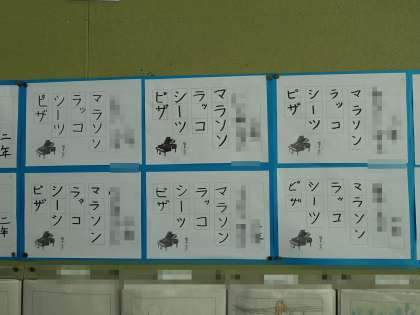 マラソン
ラッコ
シーツ
ピザ
マラソン
ラッコ
シーツ
ピザ
マラソン
ラッコ
シーツ
ピザ
二年
マラソン
ラッコ
シーツ
ピザ
マラソン
ラッコ
シーツ
ピザ
マラソン
ラッコ
シーツ
ピザ
二年